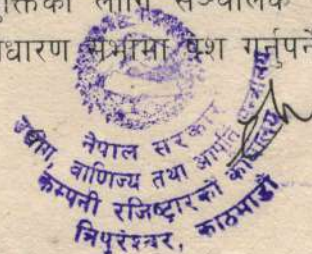 क्तिका लागि सञ्चालक
धारण सभामा पेश गर्नुपर्ने
नेपाल सरकार
उद्योग, वाणिज्य तथा आपूर्ति मन्त्रालय
कम्पनी रजिष्ट्रारको कार्यालय
त्रिपुरेश्वर, काठमाडौं